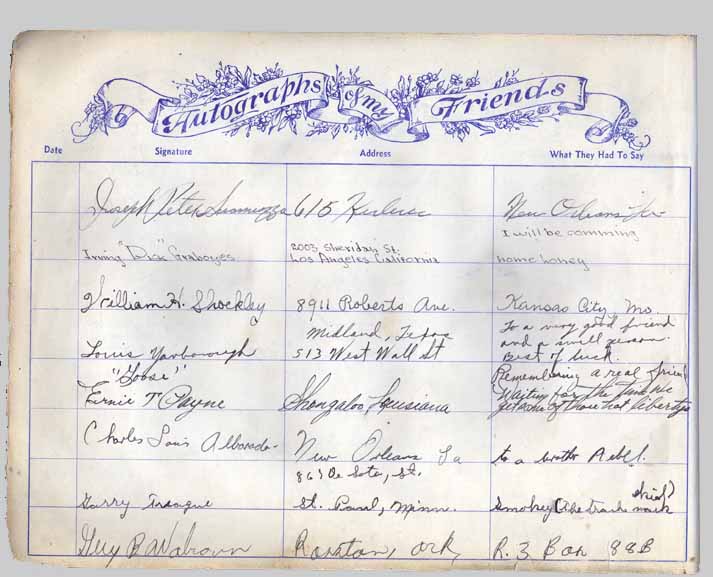 Autographs of my Friends
Date Signature Address What They Had To Say
Joseph Peter 615 New Orleans
Irving "Disk" Graboyes 2003 Sheriday St. I will be comming
Los Angeles California home honey
William H. Shockley 8911 Roberts Ave. Kansas City, Mo.
Midland, Texas To a very good friend
Louis Yarborough 513 West Wall St and a swell person.
Best of luck.
"Goose" Remembering a real friend
Ernie T Payne Shongaloo Louisiana Waiting for the time we
get one of those hot libertys
Charles Louis New Orleans La to a brother Rebel.
St.
Garry St. Paul, Minn. Smokey (the trade mark
Guy ark, R. 3 Box 88B